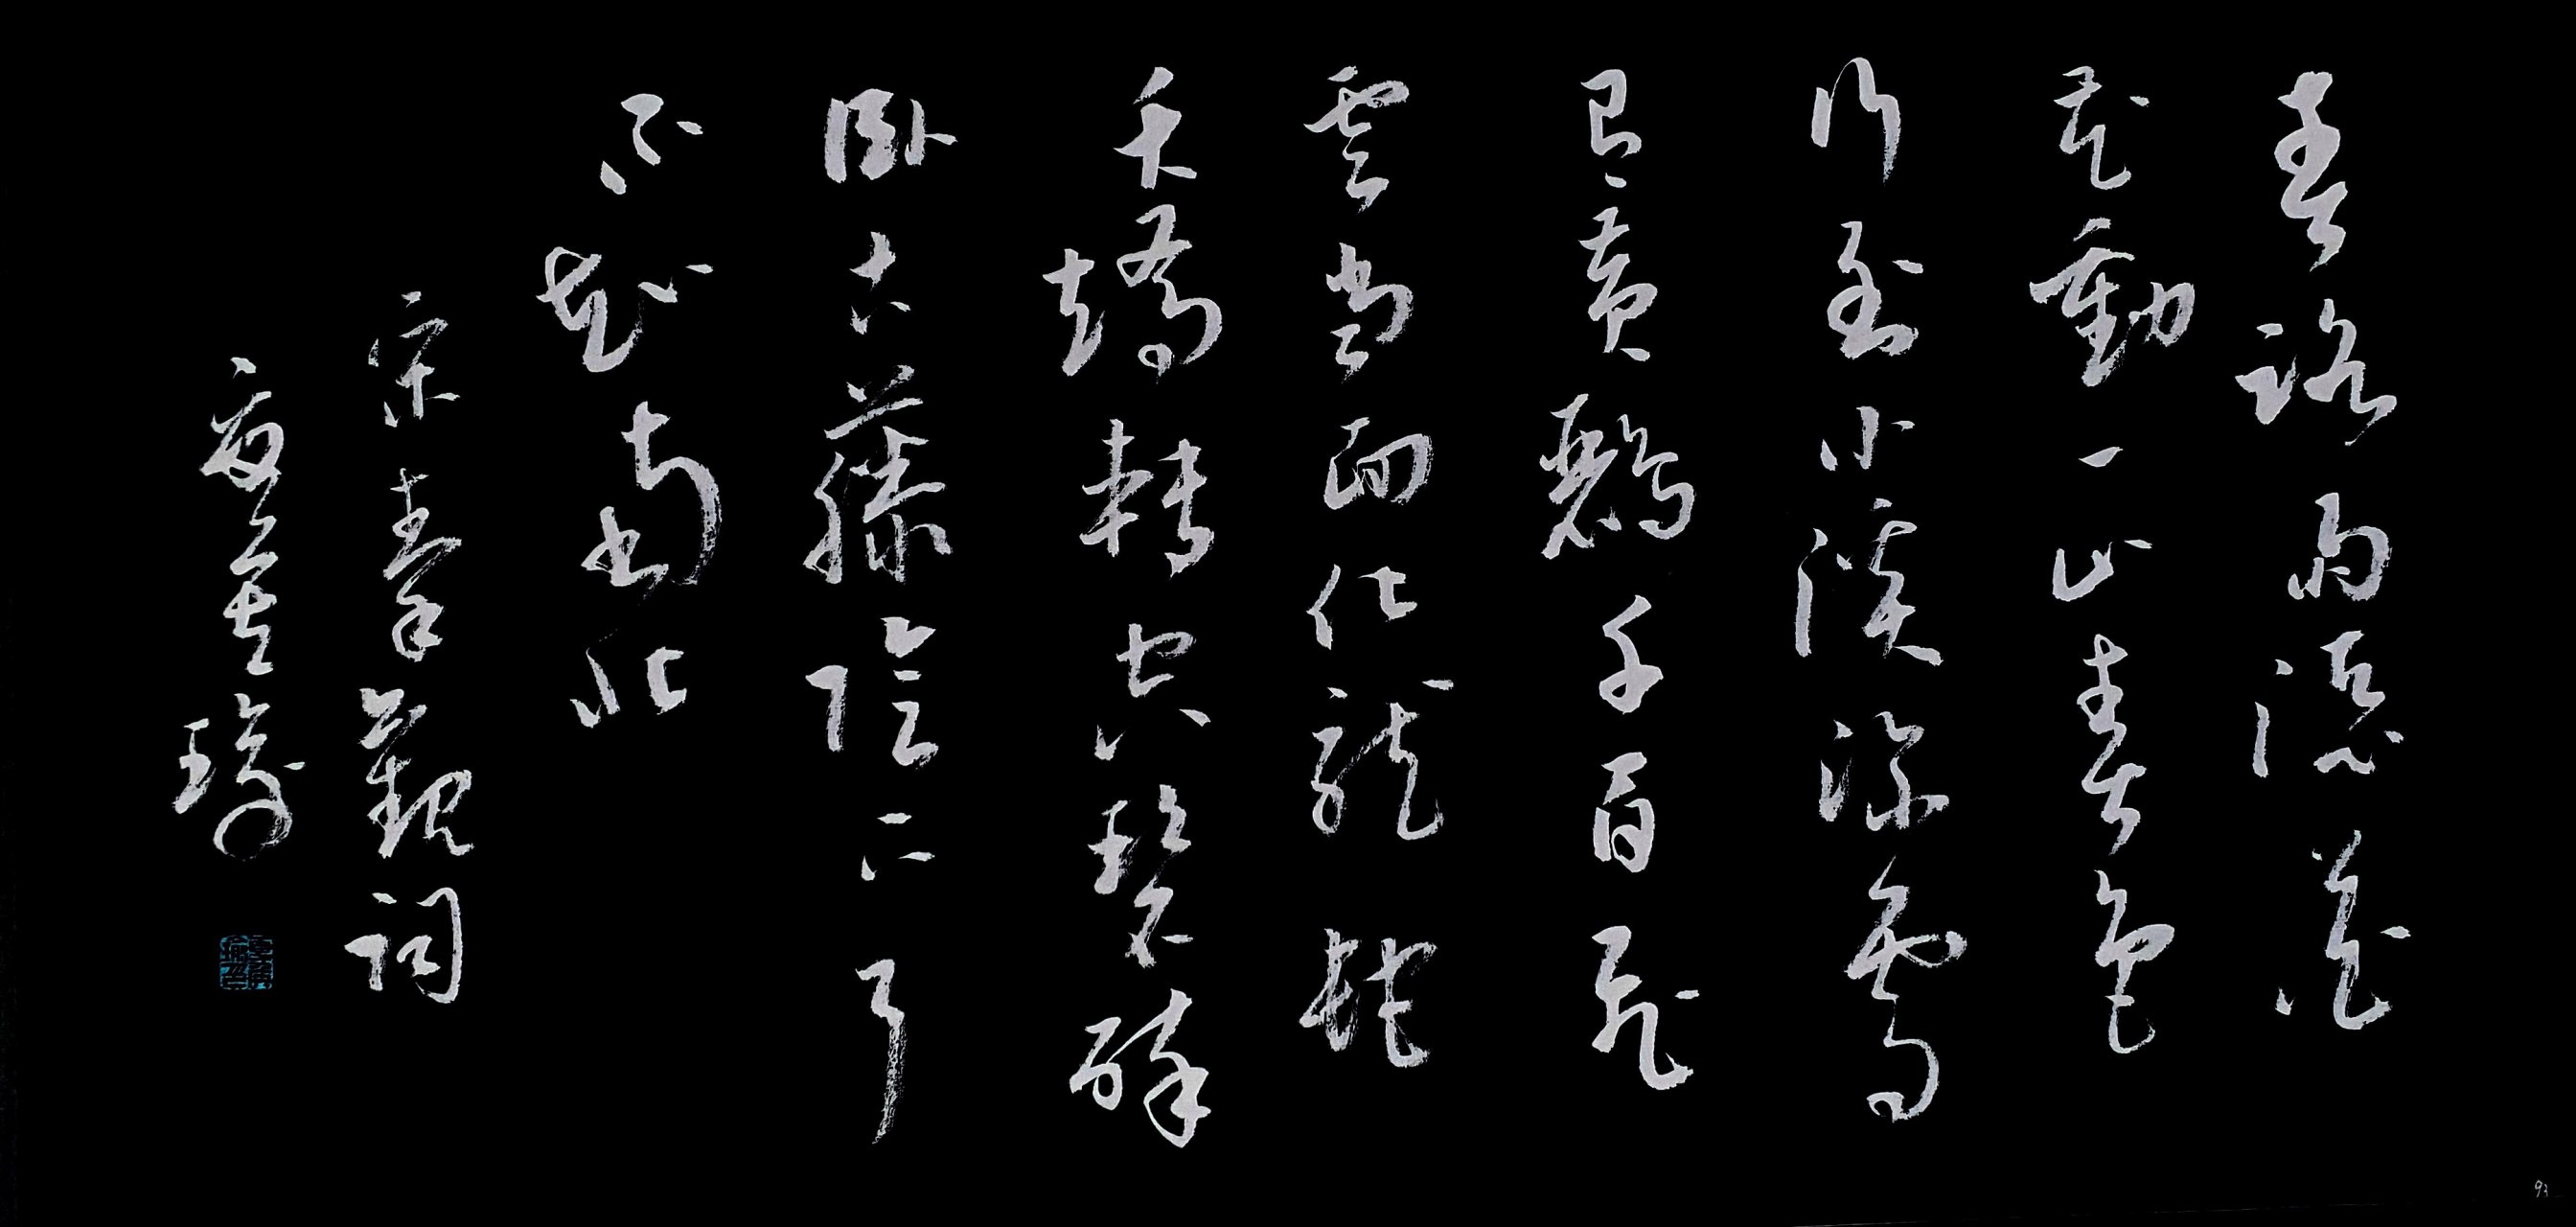 春路雨添花
花動一山春色
行到小溪深處
有黃鸝千百飛
雲當面化龍蛇
夭矯轉空碧醉
臥古藤陰下了
不知南北
宋秦觀詞
93